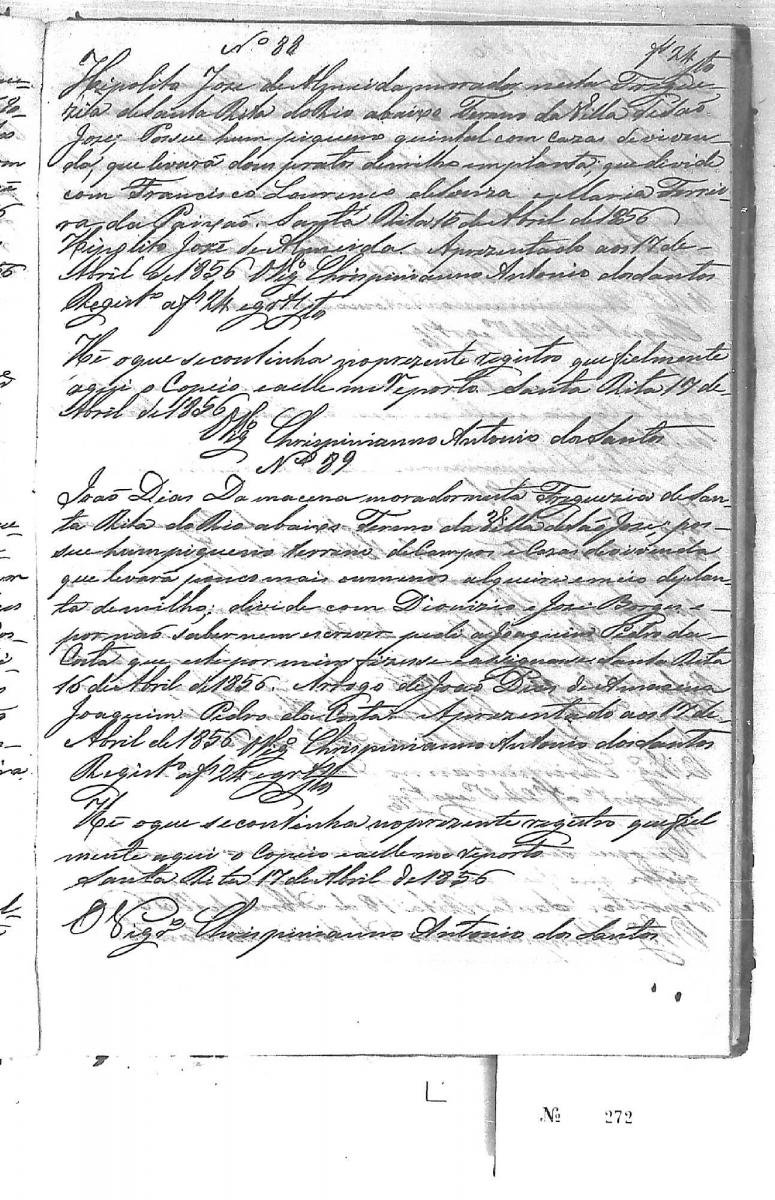 Nº 88
fl 24
Hipolito Joze de Almeida morador nesta Fregue-
zia de Santa Rita do Rio abaixo Termo da Villa de São
Joze; Possue hum piqueno quintal com cazas de viven-
da, que levará dous pratos de milho em planta; que divide
com Francisco Lourenço de Souza e Maria Ferrei-
ra da Paixaõ. Santa Rita 15 de Abril de 1856
Hipolito Joze de Almeida. Aprezentado aos 17 de-
Abril de 1856 O Vigº Chrispinianno Antonio dos Santos
Registº a fl 24 e grátto
Hé o que se continha no prezente registro que fielmente
aqui o Copeio e a elle me reporto Santa Rita 17 de-
Abril de 1856
O Vigº Chrispinianno Antonio dos Santos
Nº 89
João Dias Damacena morador nesta Freguezia de San-
ta Rita do Rio abaixo Termo da Villa de São Joze; pos-
sue hum piqueno terreno de Campos e Cazas de vivenda
que levará pouco mais ou menos alqueire e meio de plan-
ta de milho; divide com Dionizio e José Borges e-
por naõ saber nem escrever pedi a Joaquim Pedro da-
Costa que este por mim fizesse e asignase Santa Rita
16 de Abril de 1856. Arrogo de João Dias de Amacena
Joaquim Pedro da Costa. Aprezentado aos 17 de-
Abril de 1856 O Vigº Chrispinianno Antonio dos Santos
Registº a fl 24
Hé o que se continha no prezente registro que fiel
mente aqui o Copeio e a elle me reporto
Santa Rita 17 de Abril de 1856
O Vigrº Chrispinianno Antonio dos Santos
Nº 272